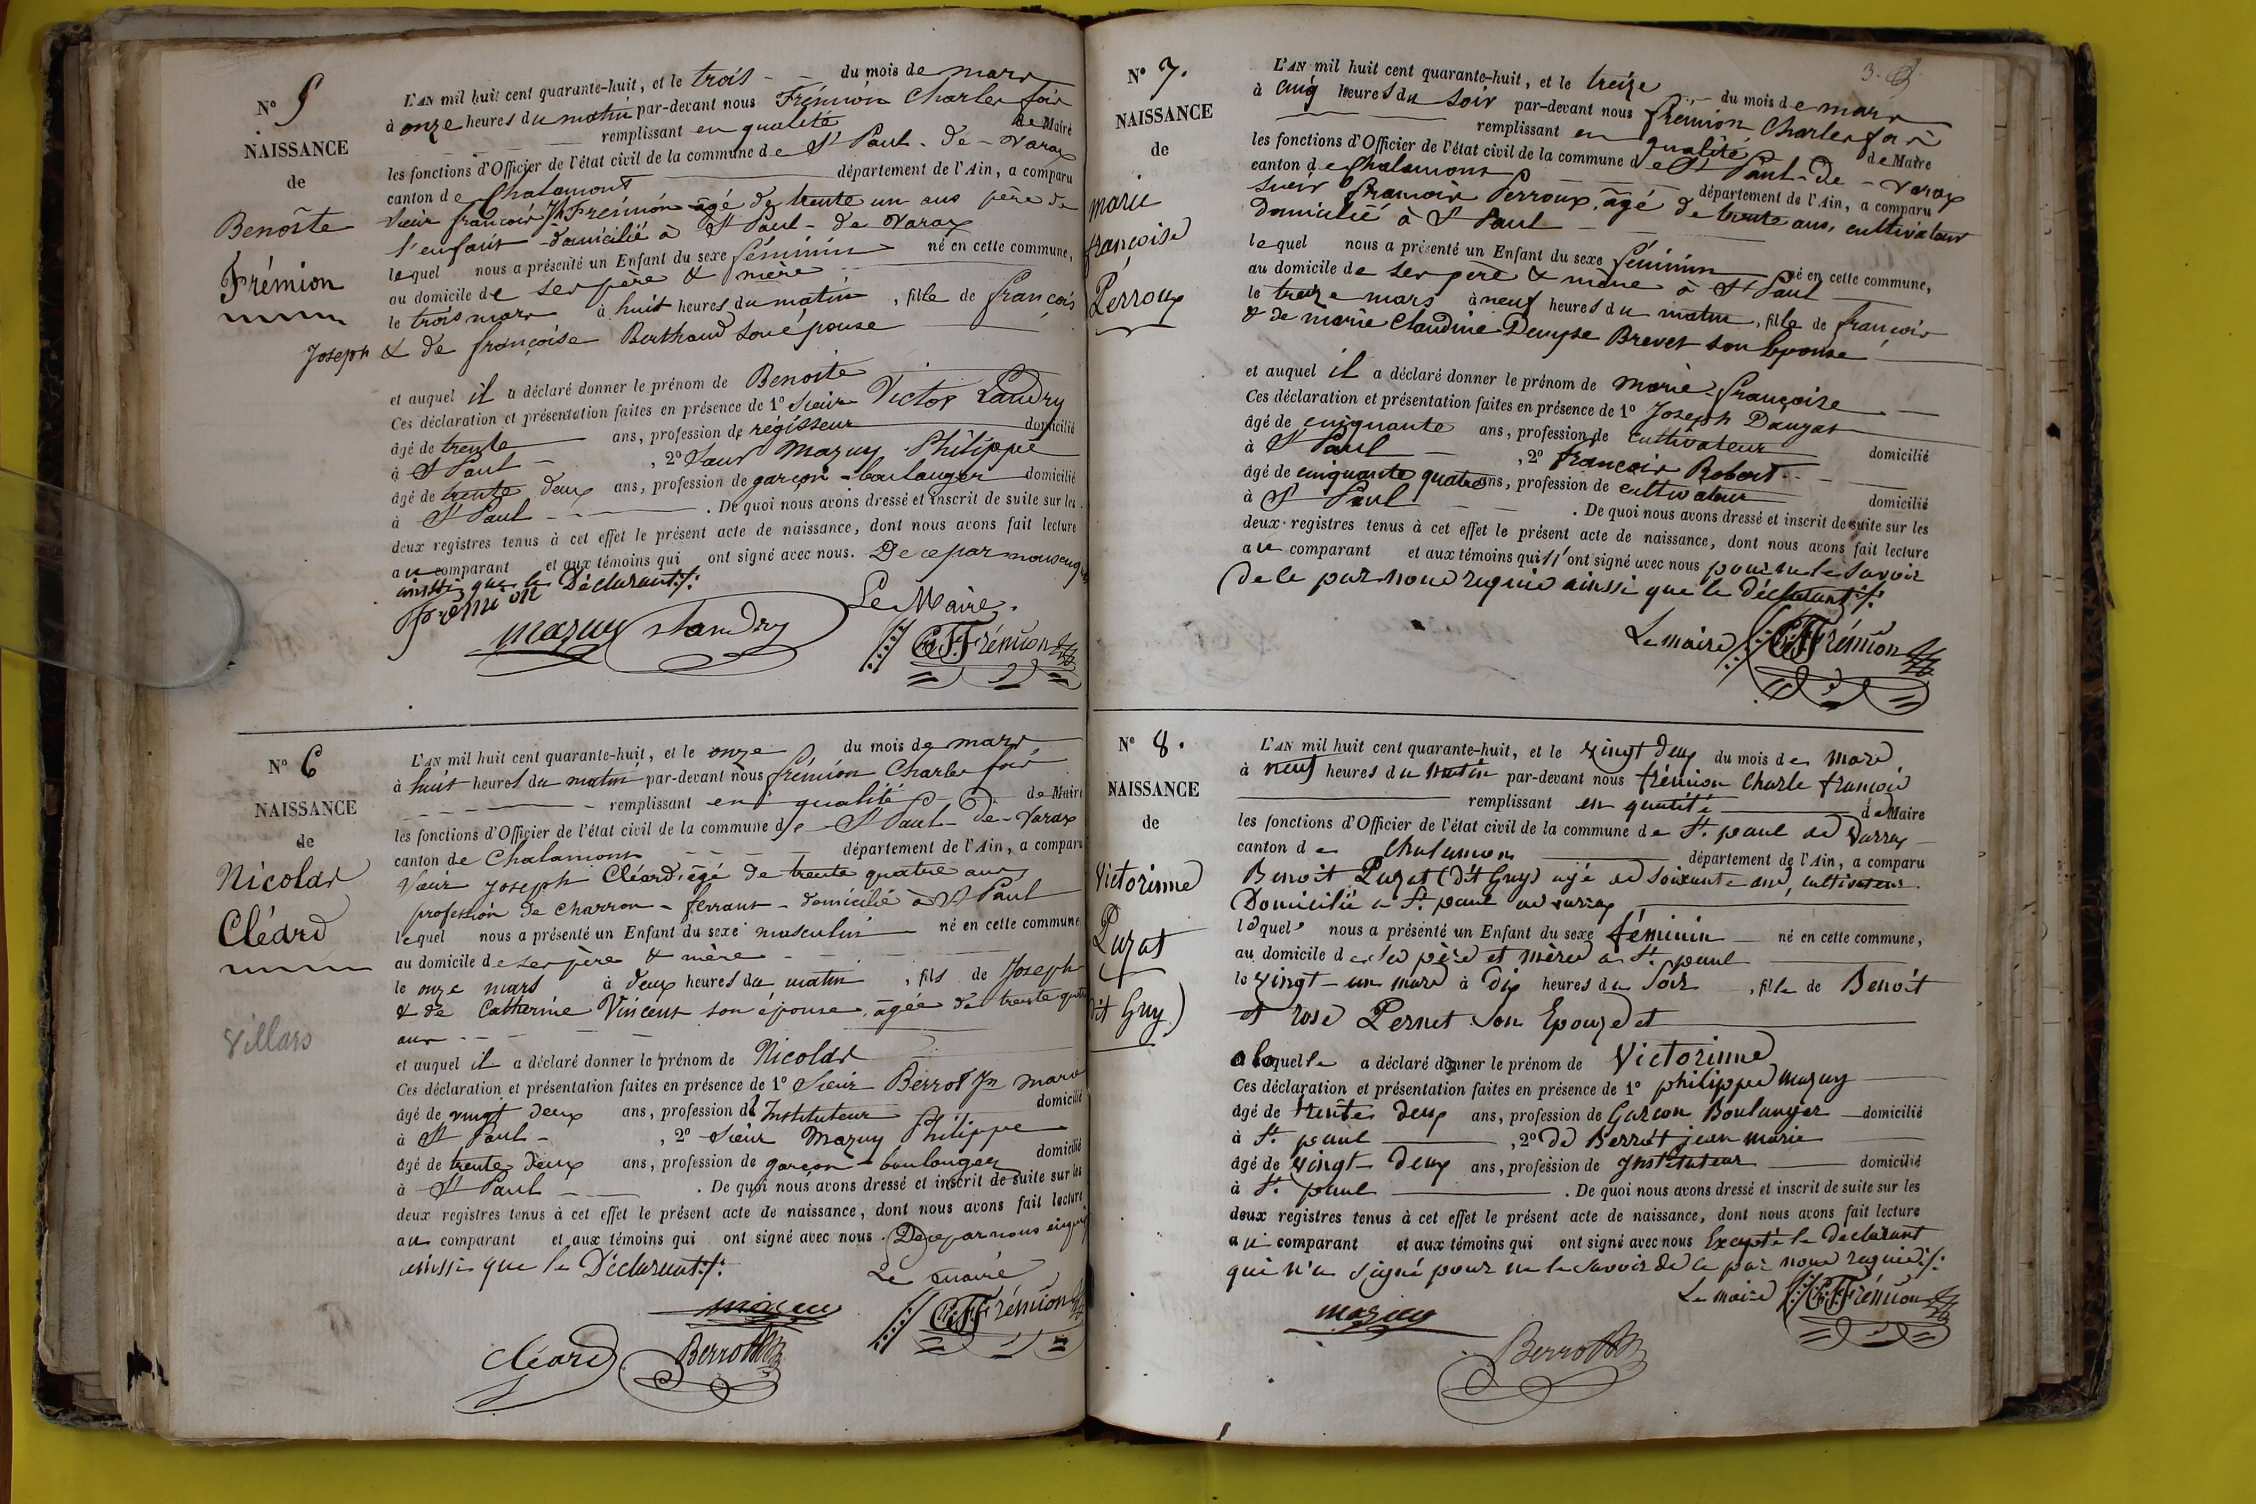 N° 5
NAISSANCE
de
Benoîte
Frémion
L'AN mil huit cent quarante-huit, et le trois du mois de mars
à onze heures du matin par-devant nous Frémion Charles fois
remplissant en qualité de Maire
les fonctions d'Officier de l'état civil de la commune de St Paul-de-Varax
canton de Chalamont département de l'Ain, a comparu
Sieur françois Jh Frémion âgé de trente un ans père de
l'enfant domicilié à St Paul-de Varax
lequel nous a présenté un Enfant du sexe féminin né en cette commune,
au domicile de ses père & mère
le trois mars à huit heures du matin, fille de françois
Joseph & de françoise Berthaud son épouse
et auquel il a déclaré donner le prénom de Benoite
Ces déclaration et présentation faites en présence de 1° Sieur Victor Landry
âgé de trente ans, profession de régisseur domicilié
à St Paul, 2° Sieur Mazuy Philippe
âgé de trente deux ans, profession de garçon-boulanger domicilié
à St Paul. De quoi nous avons dressé et inscrit de suite sur les
deux registres tenus à cet effet le présent acte de naissance, dont nous avons fait lecture
au comparant et aux témoins qui ont signé avec nous. De ce par nous enquis
ainssi que le Déclarant :/:
Frémion
Le Maire,
mazuy Landry Ch. F. Frémion
N° 6
NAISSANCE
de
Nicolas
Cléard
Villars
L'AN mil huit cent quarante-huit, et le onze du mois de mars
à huit heures du matin par-devant nous frémion Charles fois
remplissant en qualité de Maire
les fonctions d'Officier de l'état civil de la commune de St Paul-de-Varax
canton de Chalamont département de l'Ain, a comparu
Sieur Joseph Cléard, âgé de trente quatre ans
profession de charron-ferrant-domicilié à St Paul
lequel nous a présenté un Enfant du sexe masculin né en cette commune
au domicile de ses père & mère
le onze mars à deux heures du matin, fils de Joseph
& de Catherine Vincent son épouse, âgée de trente quatre
ans
et auquel il a déclaré donner le prénom de Nicolas
Ces déclaration et présentation faites en présence de 1° Sieur Berrot Jn marie
âgé de vingt deux ans, profession d'Instituteur domicilié
à St Paul, 2° Sieur Mazuy Philippe
âgé de trente deux ans, profession de garçon-boulanger domicilié
à St Paul. De quoi nous avons dressé et inscrit de suite sur les
deux registres tenus à cet effet le présent acte de naissance, dont nous avons fait lecture
au comparant et aux témoins qui ont signé avec nous. De ce par nous enquis
ainssi que le Déclarant :/:
Le maire
mazuy
Ch. F. Frémion
Cléard Berrot
3.
N° 7.
NAISSANCE
de
marie
françoise
Perroux
L'AN mil huit cent quarante-huit, et le treize du mois de mars
à cinq heures du soir par-devant nous frémion Charles fois
remplissant en qualité de Maire
les fonctions d'Officier de l'état civil de la commune de St Paul-de-Varax
canton de Chalamont département de l'Ain, a comparu
Sieur françois Perroux, âgé de trente ans, cultivateur
Domicilié à St Paul
lequel nous a présenté un Enfant du sexe féminin né en cette commune,
au domicile de ses père & mère à St Paul
le treize mars à neuf heures du matin, fille de françois
& de marie Claudine Denyse Brevet son épouse
et auquel il a déclaré donner le prénom de marie-françoise
Ces déclaration et présentation faites en présence de 1° Joseph Dauzat
âgé de cinquante ans, profession de cultivateur domicilié
à St Paul, 2° françois Robert
âgé de cinquante quatre ans, profession de cultivateur domicilié
à St Paul. De quoi nous avons dressé et inscrit de suite sur les
deux registres tenus à cet effet le présent acte de naissance, dont nous avons fait lecture
au comparant et aux témoins qui n'ont signé avec nous pour ne le savoir
de ce par nous requis ainssi que le déclarant :/:
Le maire Ch. F. Frémion
N° 8.
NAISSANCE
de
Victorinne
Puzat
dit Guy)
L'AN mil huit cent quarante-huit, et le vingt deux du mois de mars
à neuf heures du matin par-devant nous frémion Charle françois
remplissant en qualité de Maire
les fonctions d'Officier de l'état civil de la commune de St. paul de Varrax
canton de Chalamon département de l'Ain, a comparu
Benoit Puzat (dit Guy) agé de soixante ans, cultivateur.
Domicilié a St. paul de varrax
lequel nous a présenté un Enfant du sexe féminin né en cette commune,
au domicile de ses père et mère a St. paul
le vingt-un mars à dix heures du soir, fille de Benoit
et rose Pernet son Epouze et
a laquelle a déclaré donner le prénom de Victorinne
Ces déclaration et présentation faites en présence de 1° philippe mazuy
âgé de trente deux ans, profession de Garçon Boulanger domicilié
à St. paul, 2° de Berrot jean marie
âgé de vingt deux ans, profession de Instituteur domicilié
à St. paul. De quoi nous avons dressé et inscrit de suite sur les
deux registres tenus à cet effet le présent acte de naissance, dont nous avons fait lecture
au comparant et aux témoins qui ont signé avec nous Excepté le déclarant
qui n'a signé pour ne le savoir de ce par nous requis :/:
Le maire Ch. F. Frémion
mazuy
Berrot